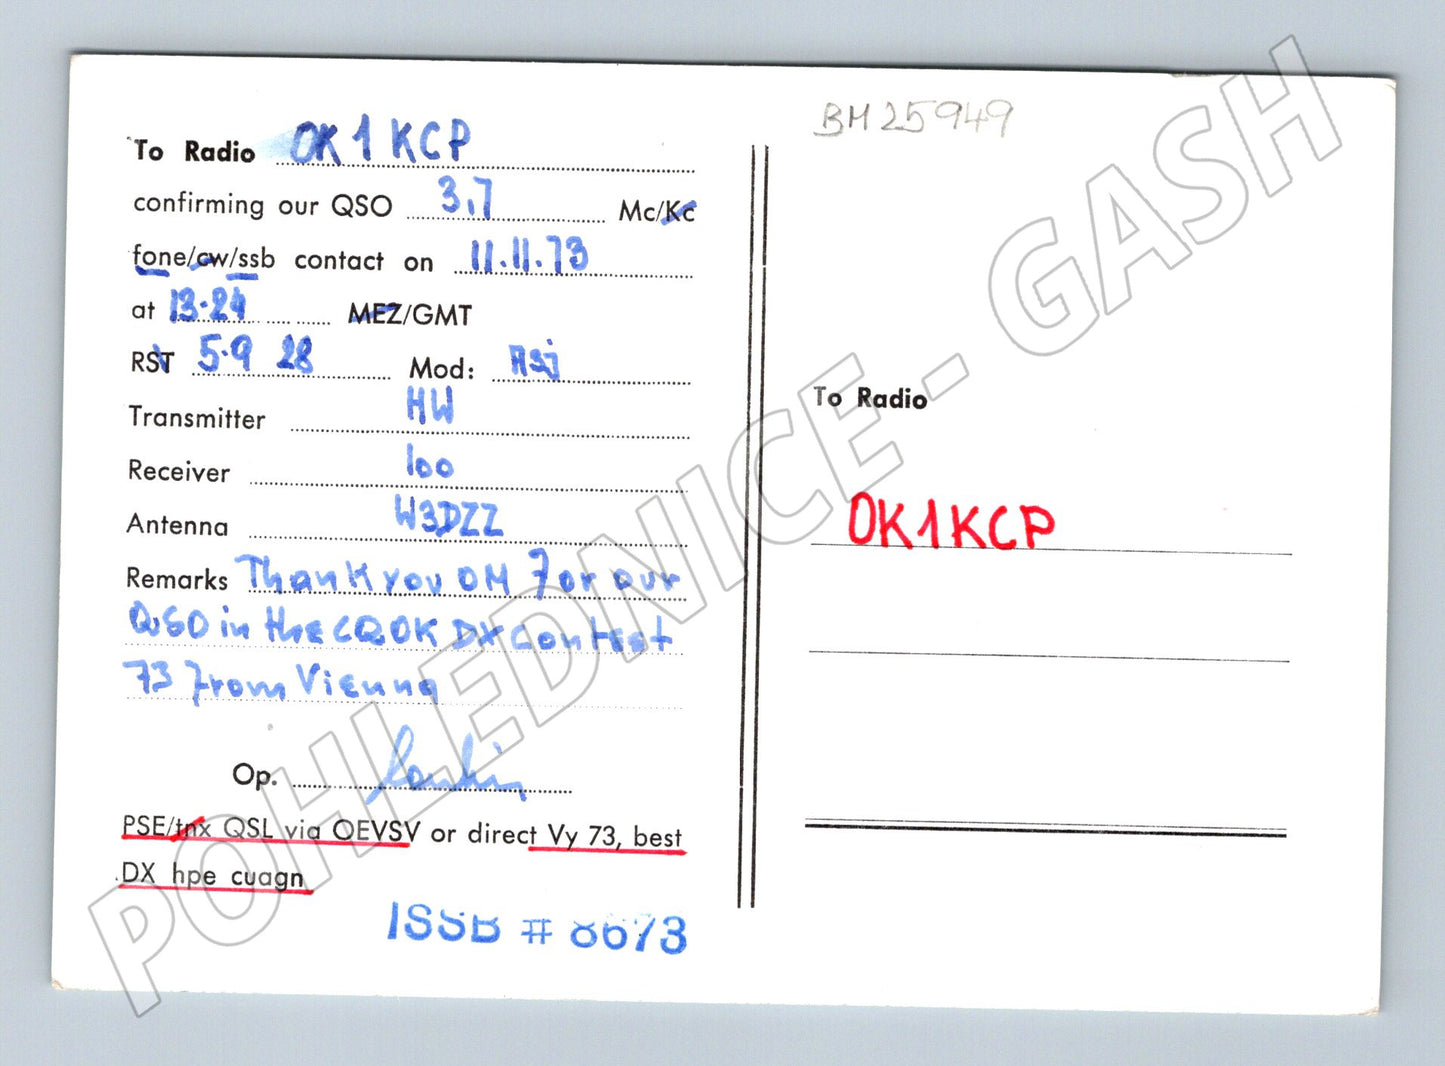 BM25949
To Radio OK1KCP
confirming our QSO 3,7 Mc/Kc
fone/cw/ssb contact on 11.11.73
at 13.24 MEZ/GMT
RST 5.9 28 Mod: A3j
Transmitter HW
Receiver 100
Antenna W3DZZ
Remarks Thank you OM for our
QSO in the CQ OK DX Contest
73 from Vienna
Op.
PSE/tnx QSL via OEVSV or direct Vy 73, best
DX hpe cuagn
ISSB # 8673
To Radio
OK1KCP
POHLEDNICE - GASH